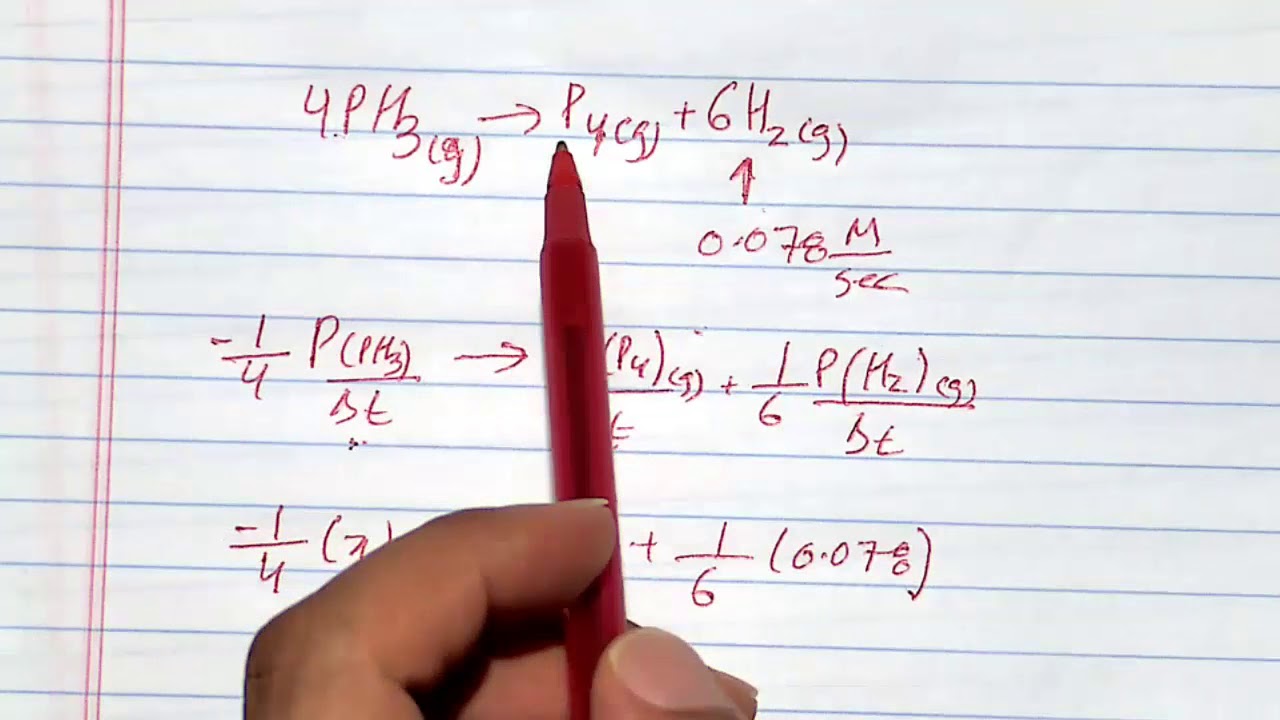 4PH3(g) → P4(g) + 6H2(g)
↑
0.078 M/sec
-1/4 P(PH3)/Δt → (P4)(g)/t + 1/6 P(H2)(g)/Δt
-1/4 (x) + 1/6 (0.078)